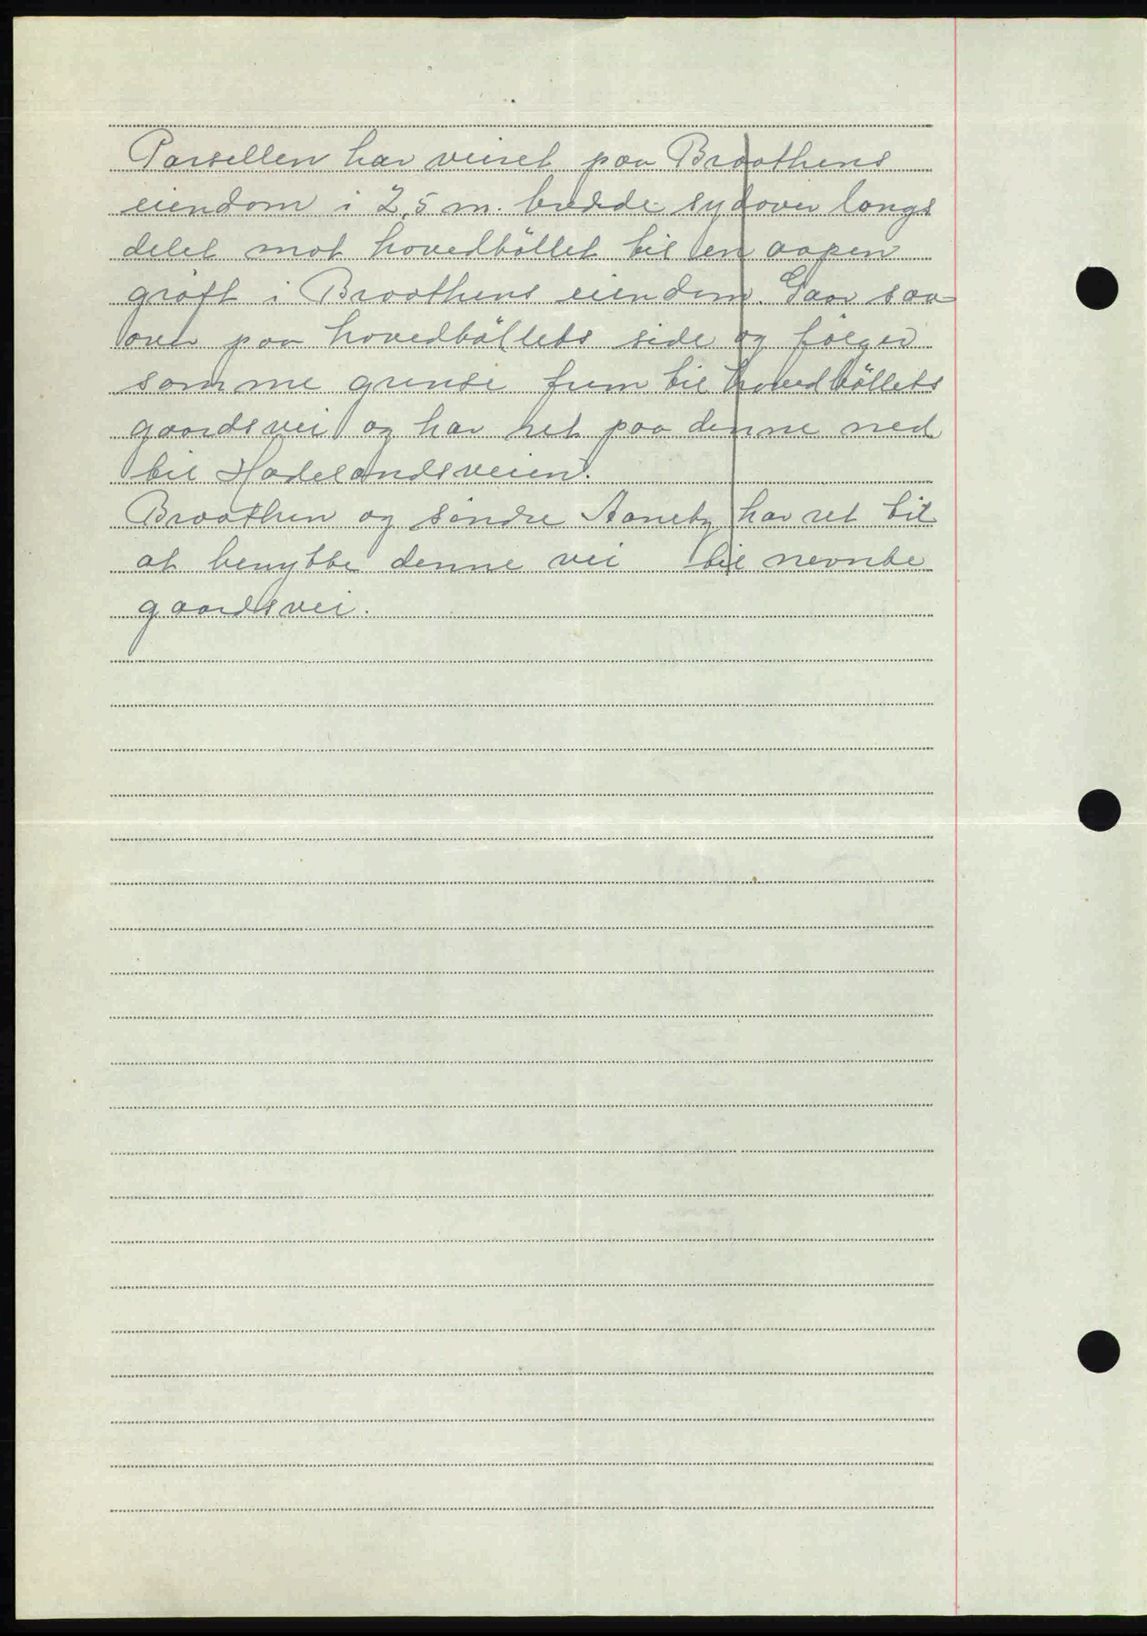 Parsellen har veiret paa Braathens
eiendom i 2,5 m. bredde sydover langs
delet mot hovedbøllet til en aapen
grøft i Braathens eiendom. Gaar saa
over paa hovedbøllets side og følger
samme grense frem til hovedbøllets
gaardsvei og har ret paa denne ned
til Hadelandsveien.
Braathen og søndre Aaneby har ret til
at benytte denne vei til nevnte
gaardsvei.